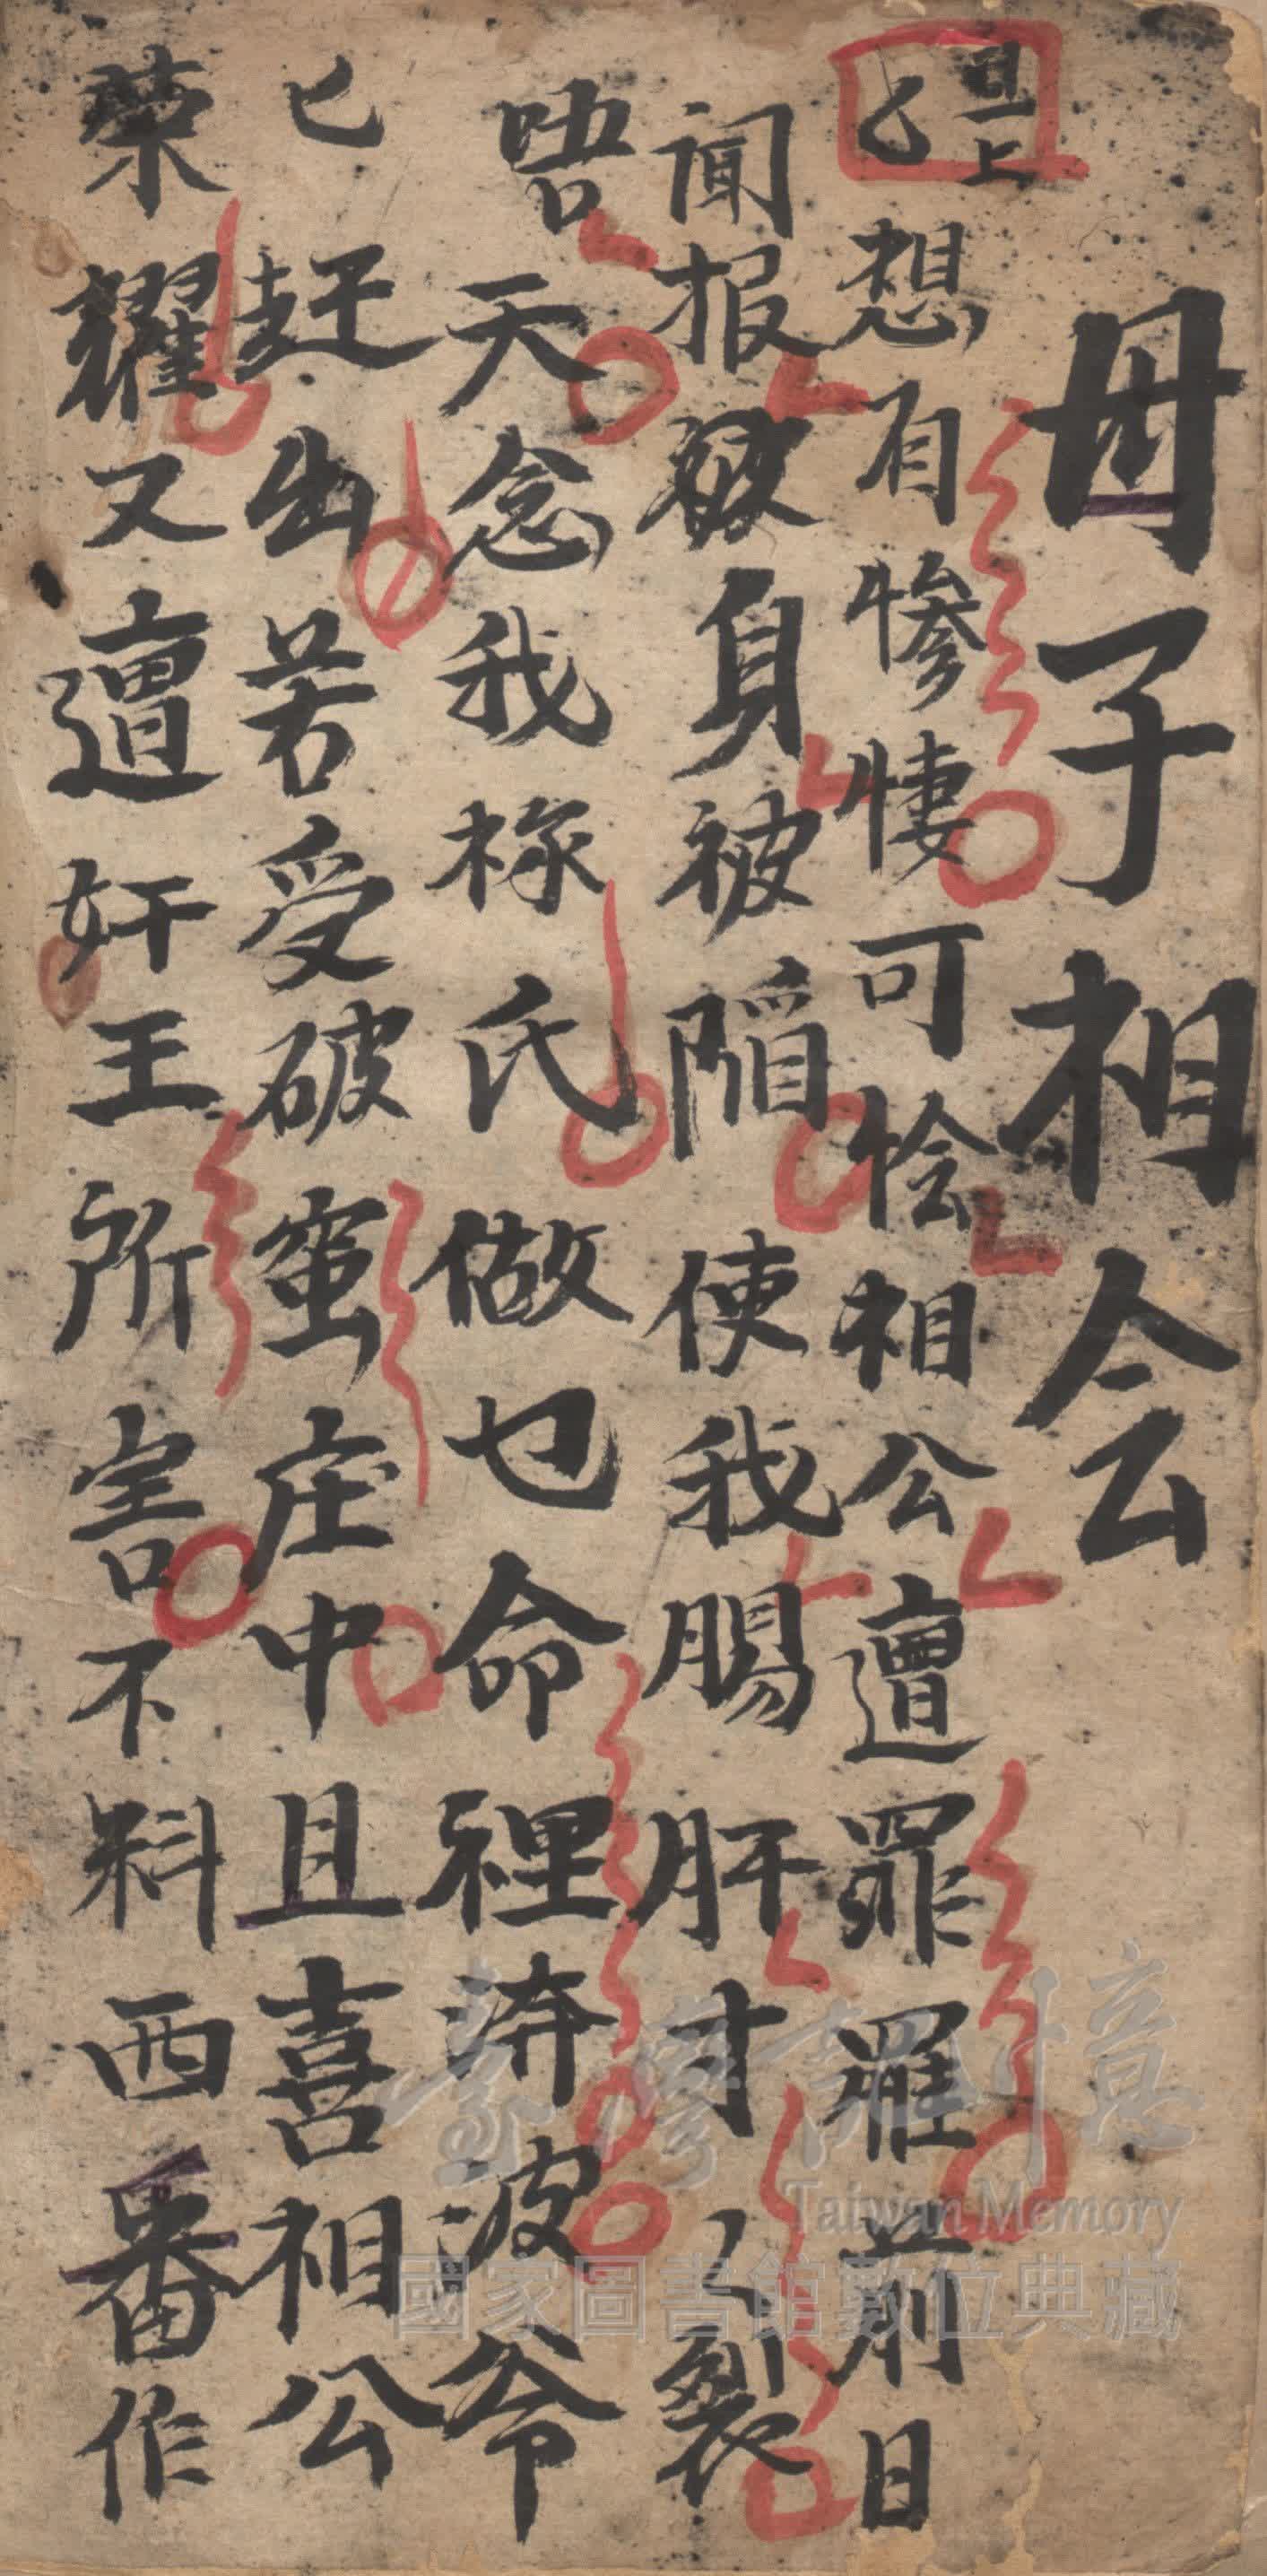 母子相会
旦上
乙想有惨悽可怜相公遭罪罹前日
闻报被身被陷使我腸肝寸乂裂
唔天念我祢氏做乜命裡渀波爷
已赶出若受破蛮庄中且喜相公
荣耀又遭奸王所害不料西番作
臺灣記憶
Taiwan Memory
國家圖書館數位典藏